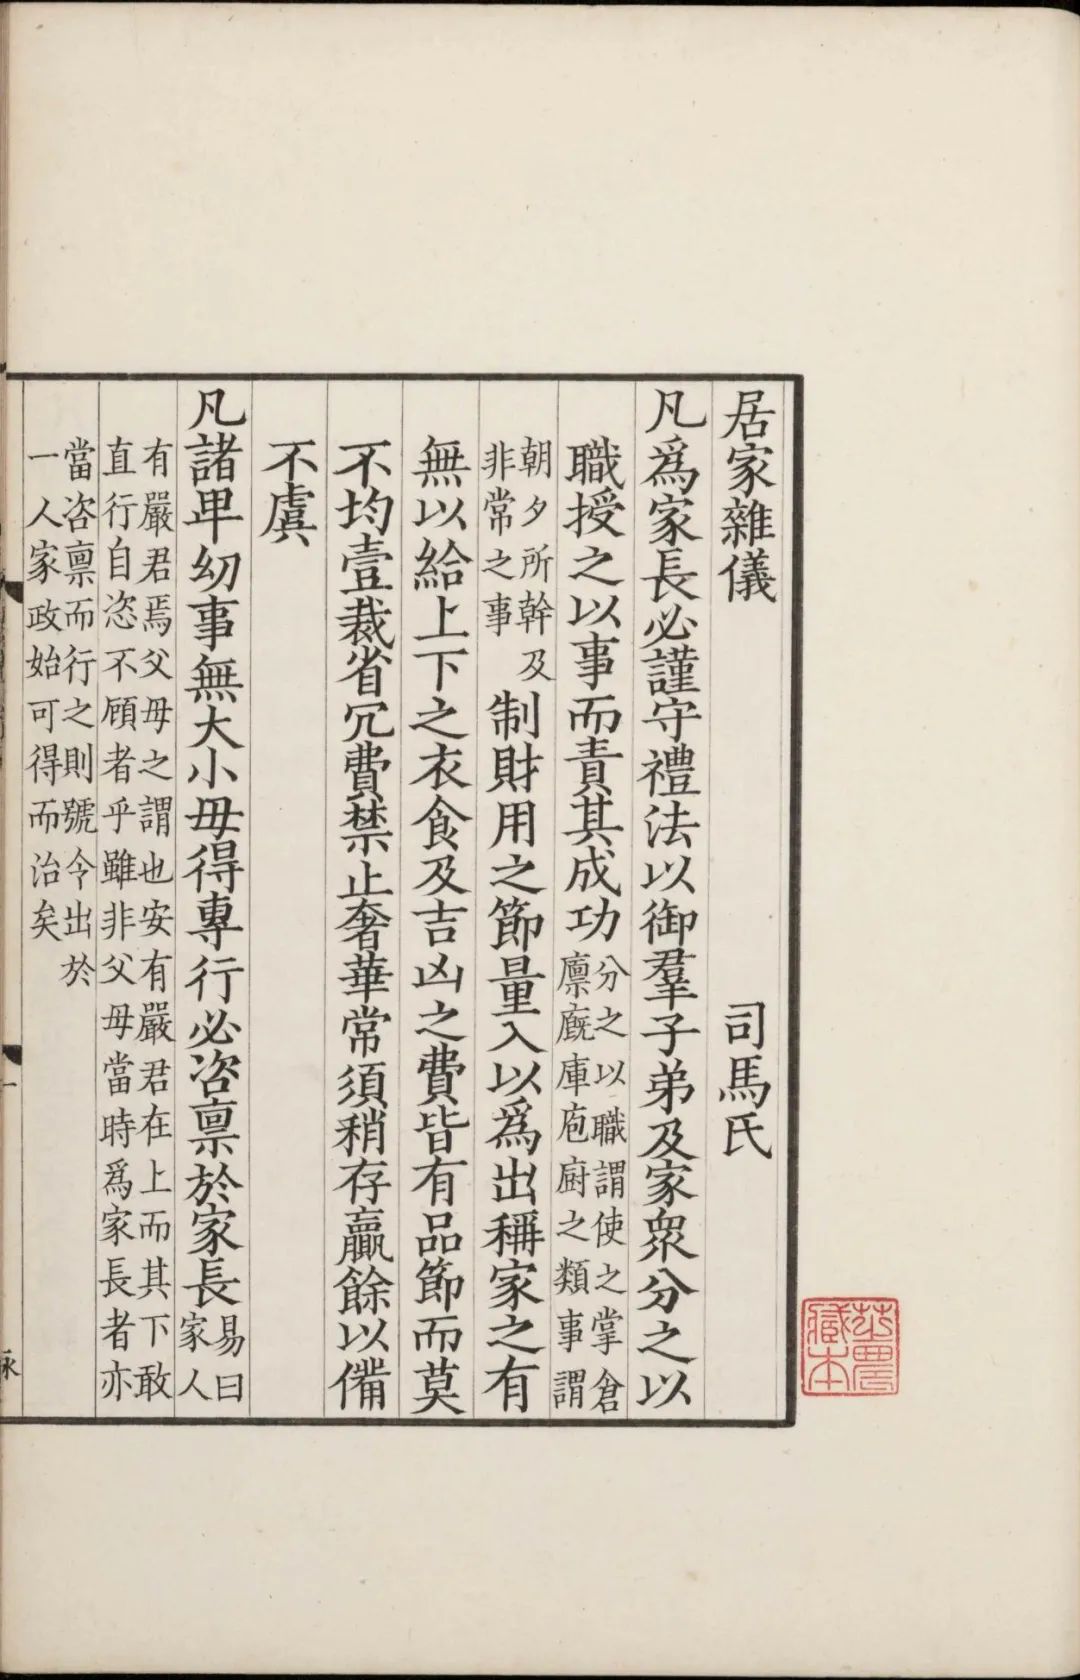 居家雜儀　司馬氏
凡爲家長必謹守禮法以御羣子弟及家衆分之以
職授之以事而責其成功分之以職謂使之掌倉
廪廐庫庖廚之類事謂
朝夕所幹及
非常之事制財用之節量入以爲出稱家之有
無以給上下之衣食及吉凶之費皆有品節而莫
不均壹裁省冗費禁止奢華常須稍存贏餘以備
不虞
凡諸卑幼事無大小毋得專行必咨禀於家長易曰
家人
有嚴君焉父母之謂也安有嚴君在上而其下敢
直行自恣不顧者乎雖非父母當時爲家長者亦
當咨禀而行之則號令出於
一人家政始可得而治矣
一
藏本